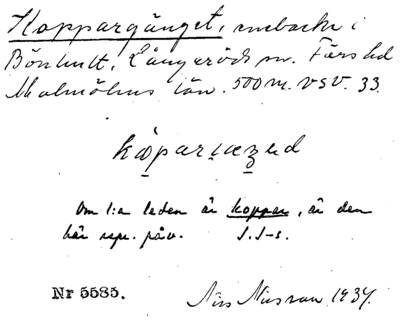 Koppargänget, enebacke i
Bönhult, Långaröds sn. Färs hd
Malmöhus län. 500 m. VSV. 33.
Om 1:a leden är koppar, är den
här rep. påv. I.I-s.
Nr 5585.
Nils Nilsson 1934.